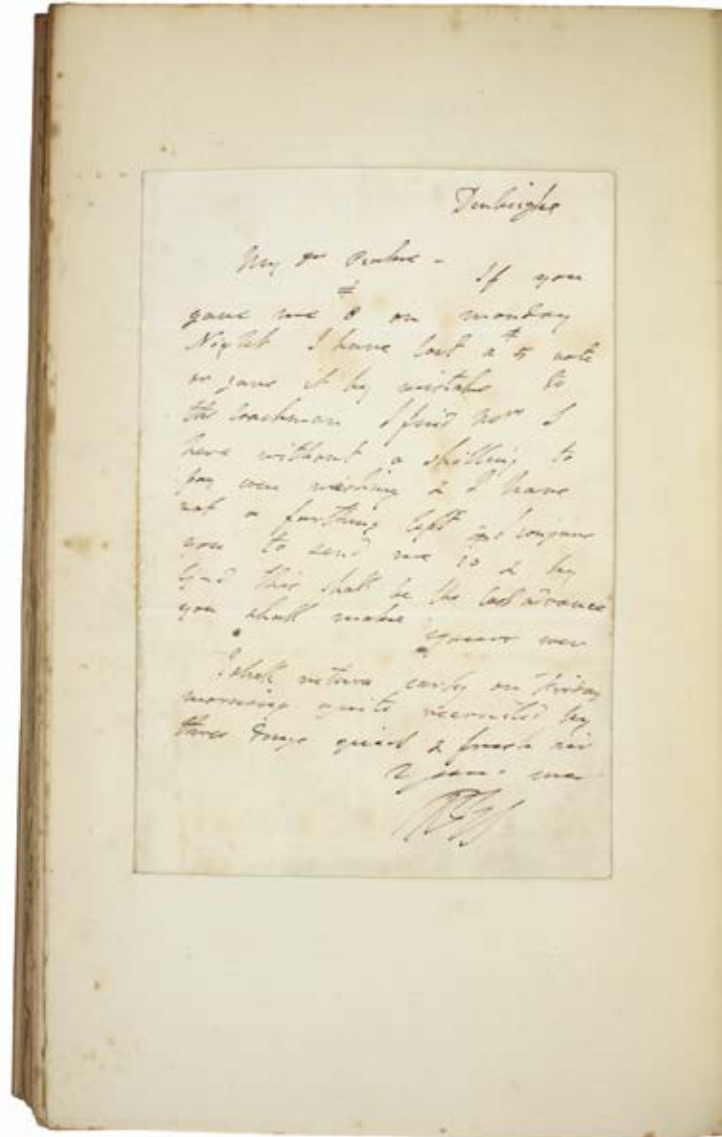 Denbighs
My Dr Peake - If you
gave me £8 on monday
Night I have lost a £5 note
or gave it by mistake to
the Coachman I find now I
here without a shilling to
pay even washing & I have
not a farthing left and conjure
you to send me 10 & by
God this shall be the last advance
you shall make
yours ever
I shall return early on Friday
morning quite recruited by
three Days quiet & fresh air
Yours ever
RBS